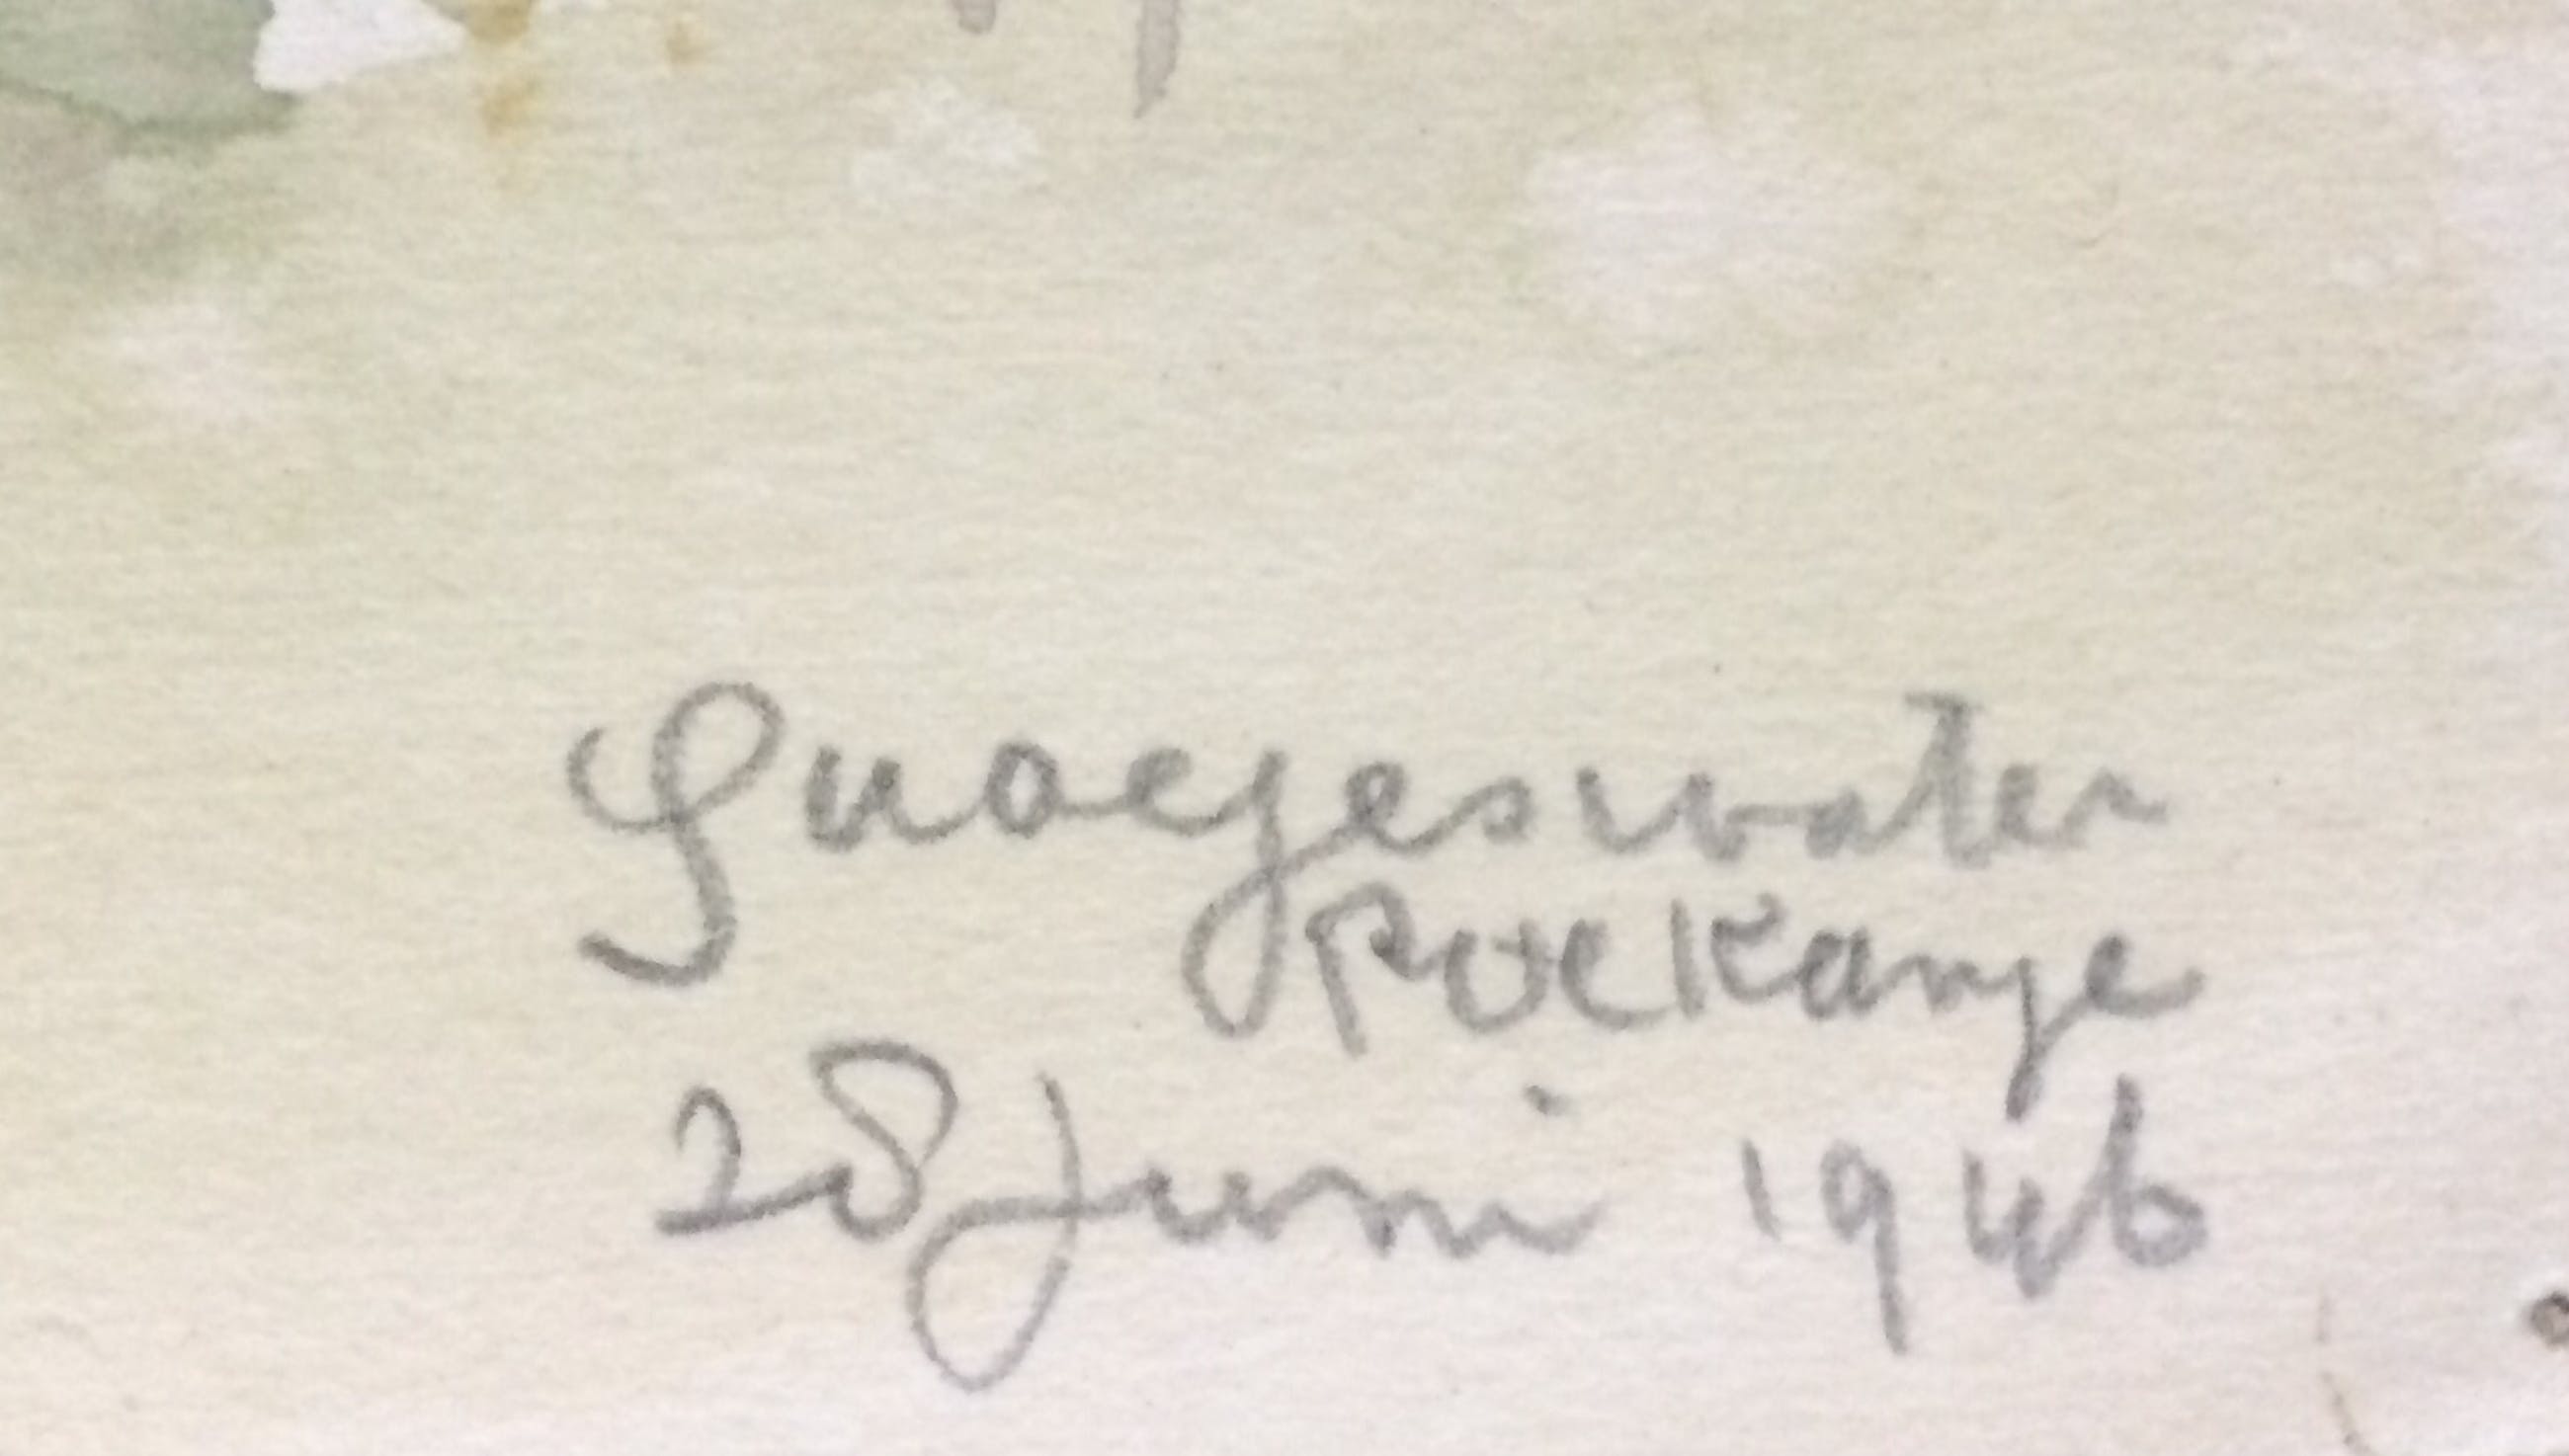 Quacjeswater
Rockanje
28 Juni 1946